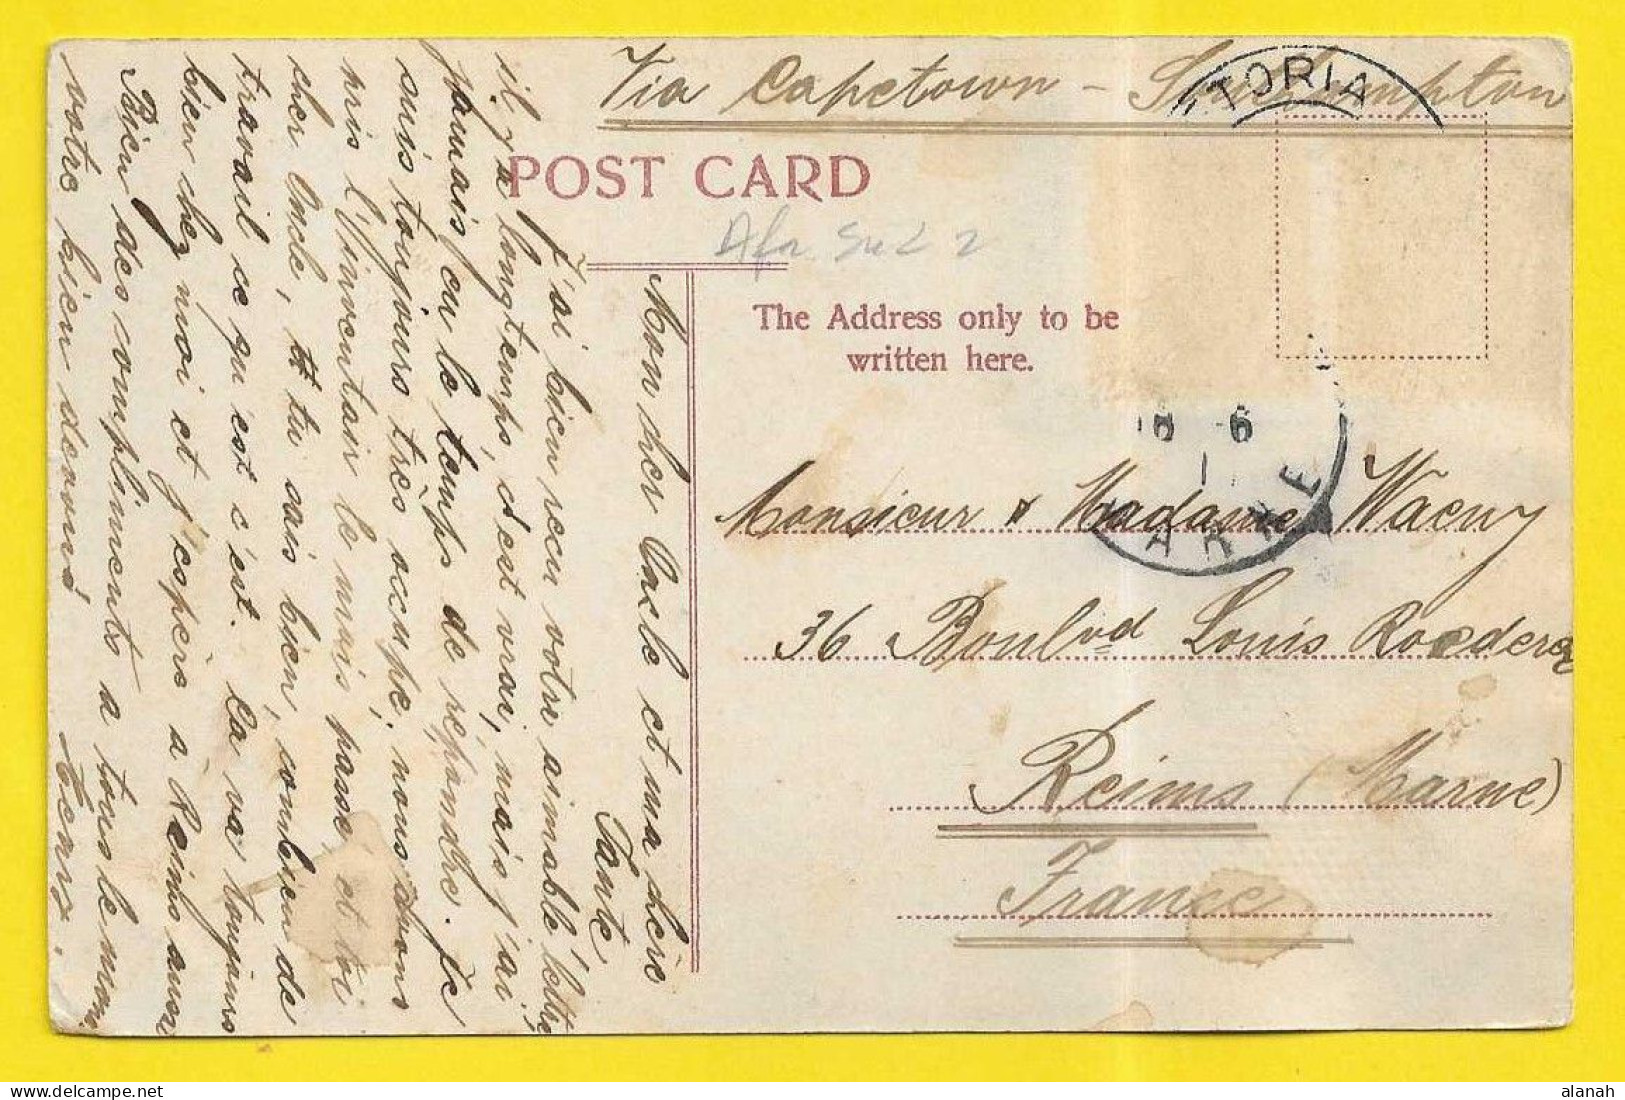 Via Capetown - Southampton
TORIA
POST CARD
Afr. Sud 2
The Address only to be
written here.
6
MARNE
Monsieur & Madame Wacuy
36 Boulvd Louis Roederer
Reims (Marne)
France
Mon cher Oncle et ma chère
Tante
J'ai bien recu votre aimable lettre,
il y a longtemps, c'est vrai, mais j'ai
jamais eu le temps de répondre. Je
suis toujours très occupé, nous avons
pris l'Inventair le mois passé, et toi
cher Oncle, tu sais bien, combien de
travail se qu'est c'est. Ca va toujours
bien chez moi et j'espère à Reims aussi
Bien des compliments a tous le mon
votre bien devoué